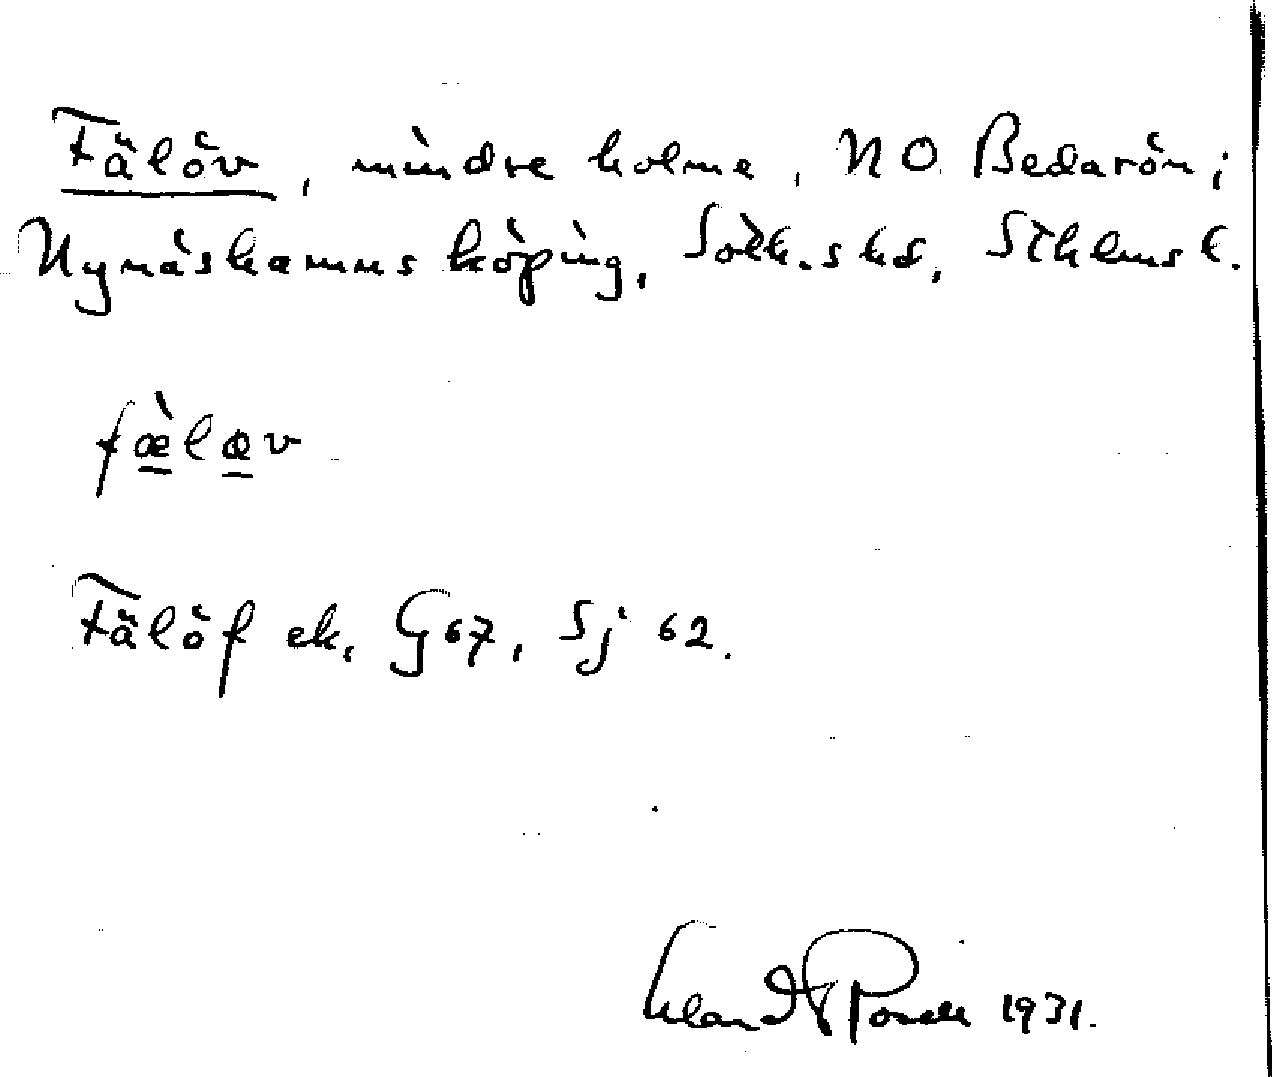 Fälöv, mindre holme, NO Bedarön;
Nynäshamns köping, Soth.s hd, Sthlms l.
fæ̀løv
Fälöf ek, G 67, Sj 62.
1931.